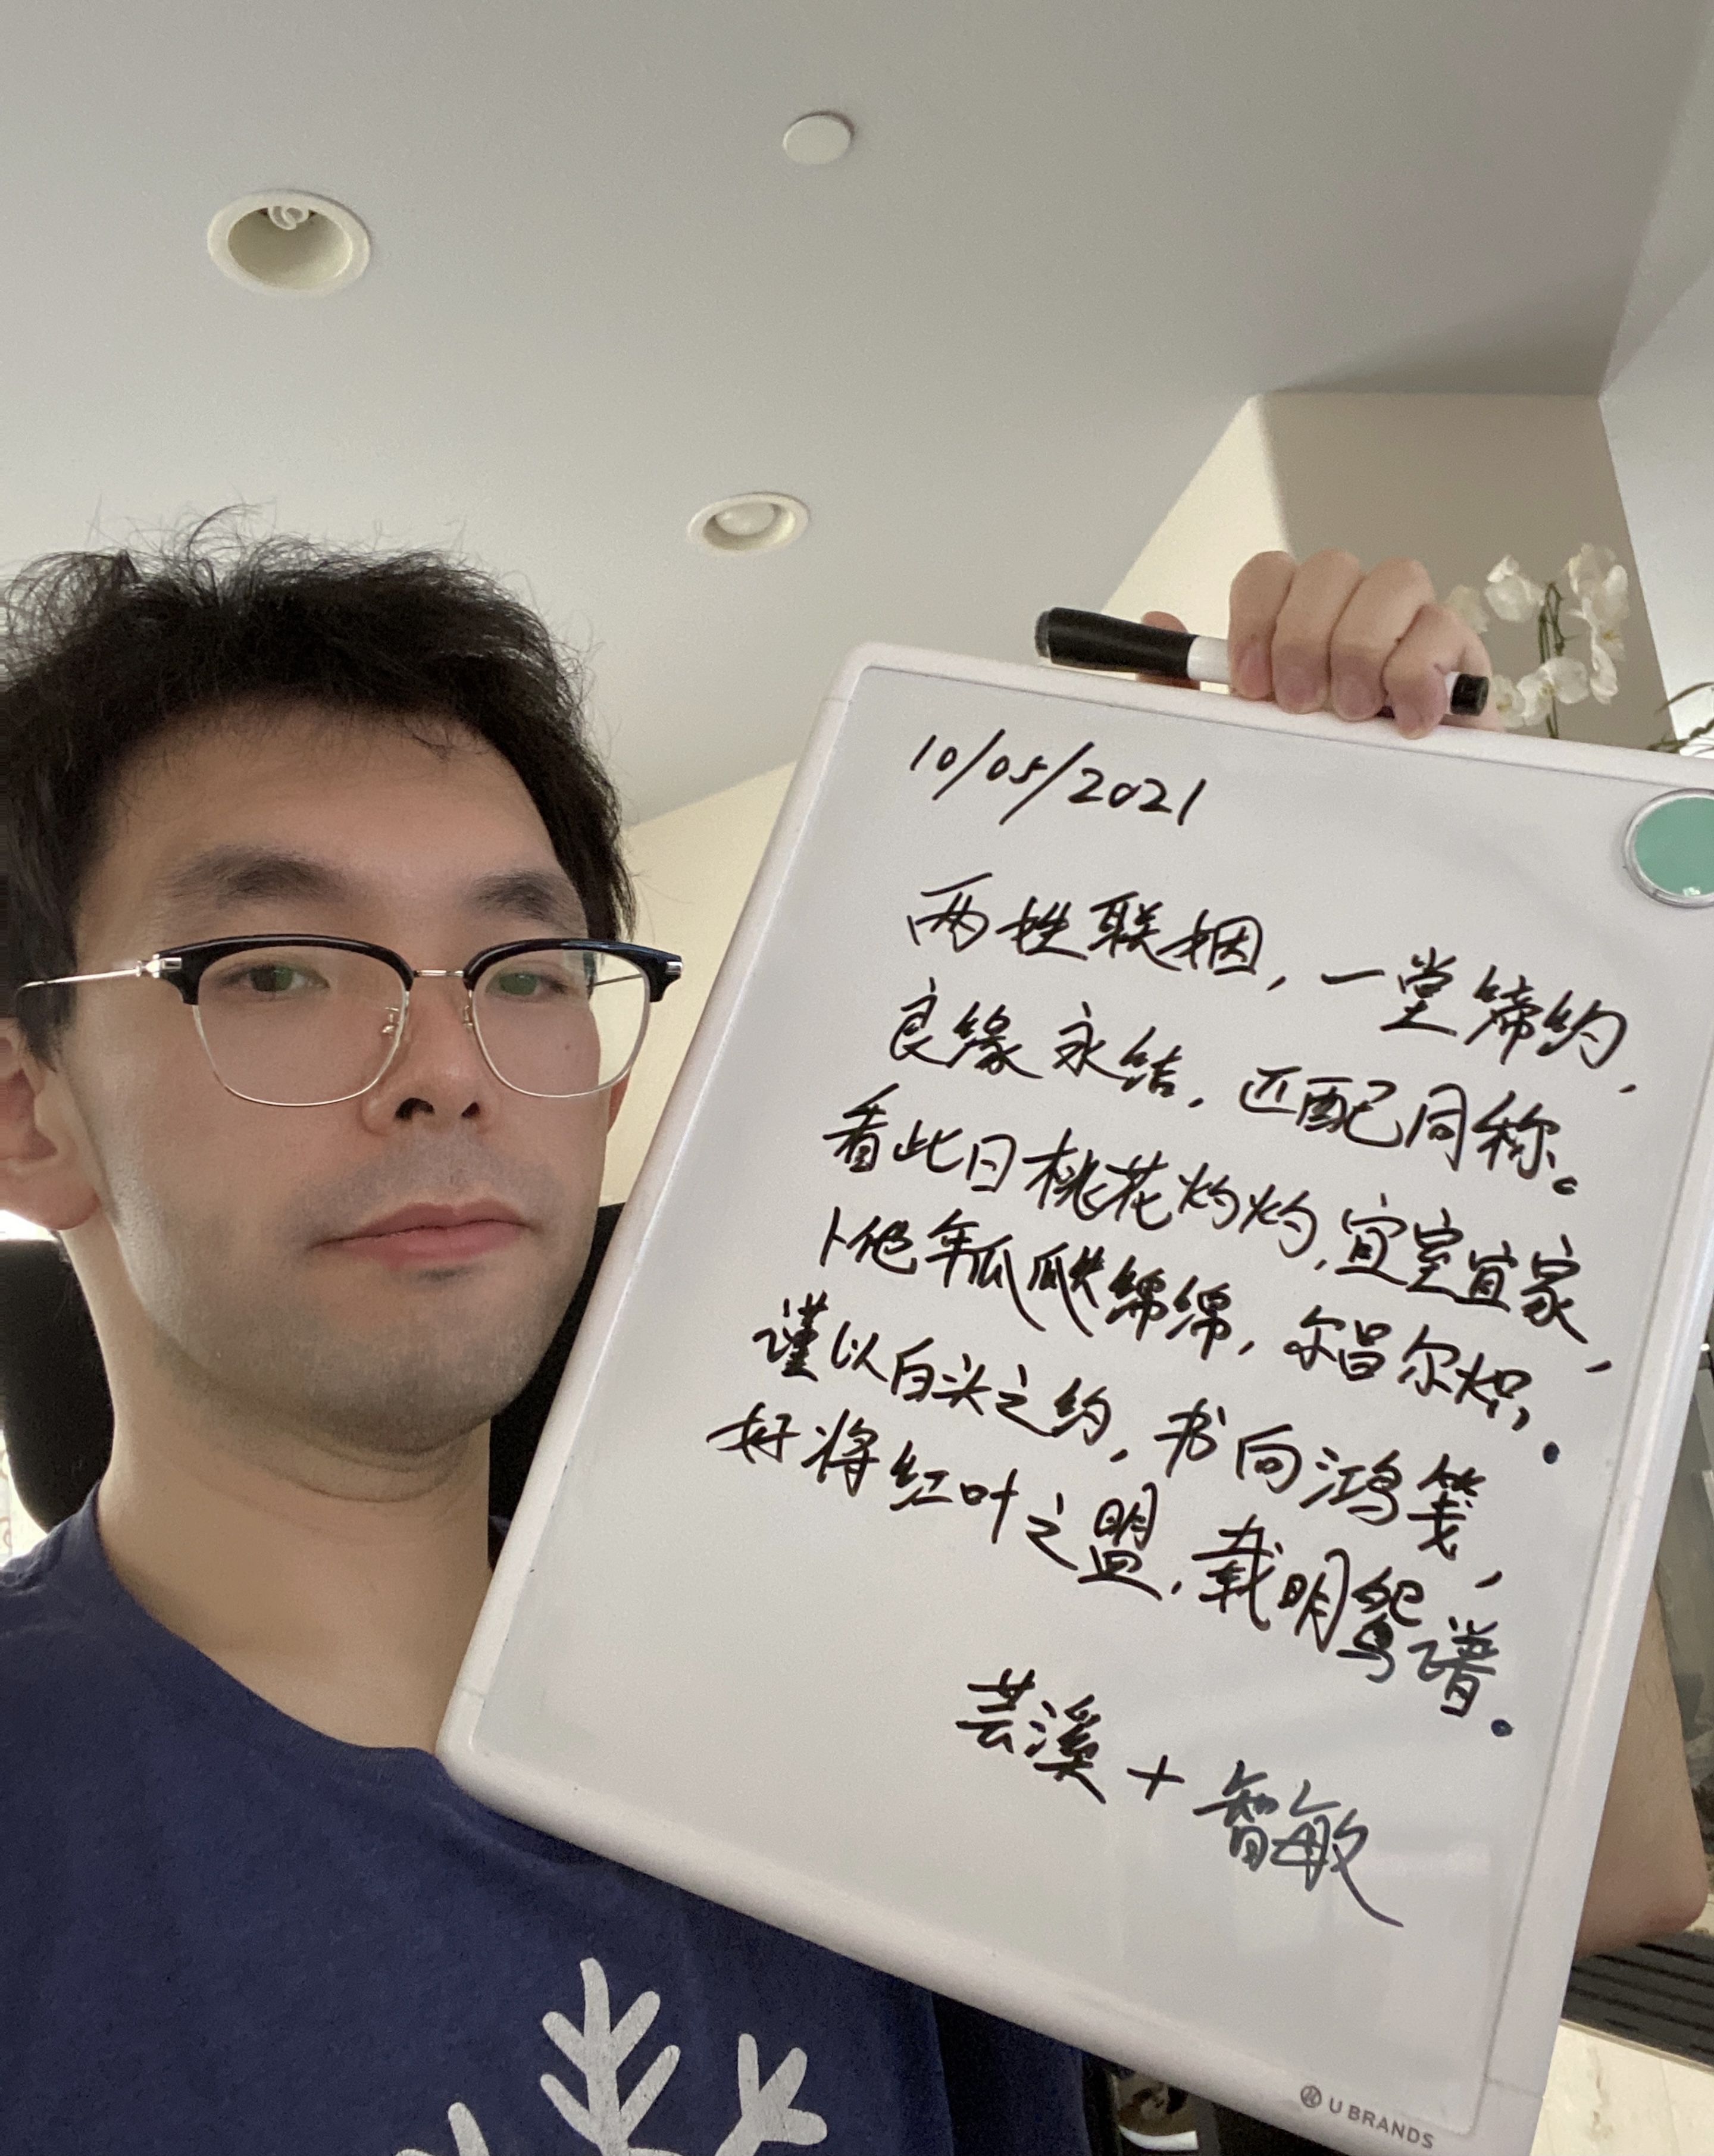 10/05/2021
两姓联姻，一堂缔约，
良缘永结，匹配同称。
看此日桃花灼灼，宜室宜家，
卜他年瓜瓞绵绵，尔昌尔炽。
谨以白头之约，书向鸿笺，
好将红叶之盟，载明鸳谱。
芸溪+智敏
U BRANDS